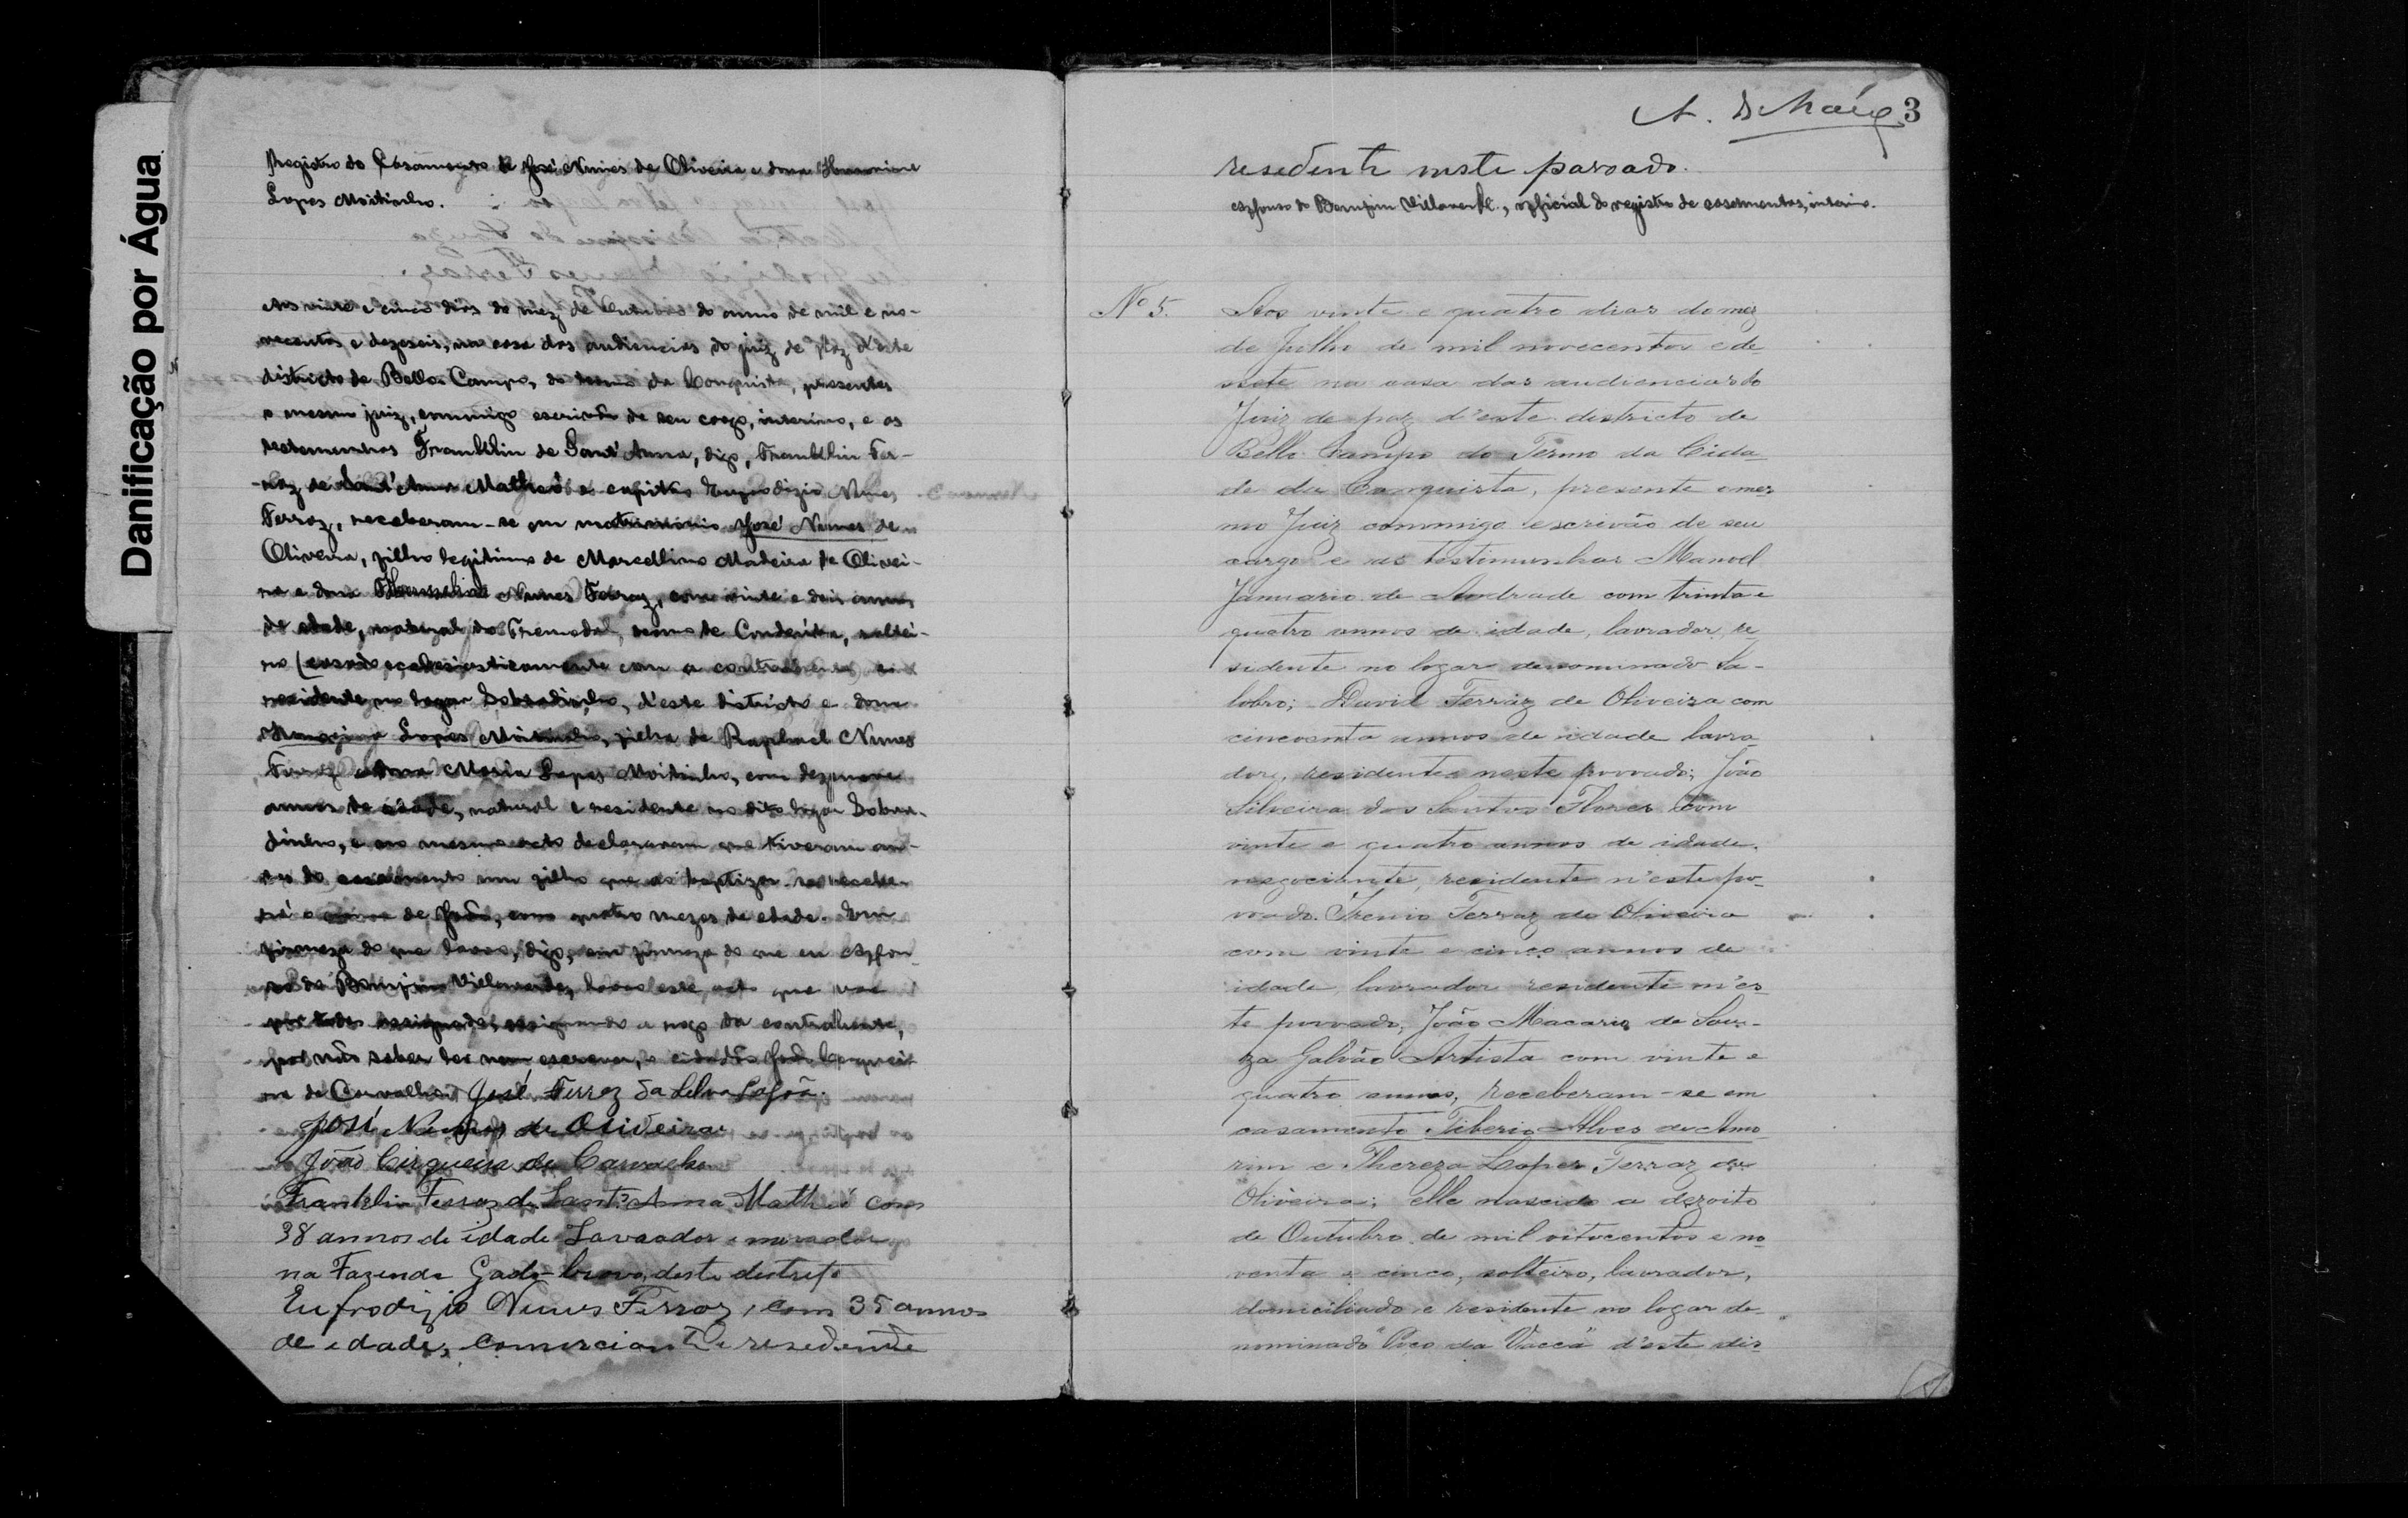 Danificação por Água
Registro do Casamento de José Nunes de Oliveira e dona
Lopes Moitinho.
Aos vinte e cinco dias do mez de Outubro do anno de mil e no-
vecentos e dezeseis, na casa das audiencias do juiz de paz d'este
districto de Bello Campo, do termo da Conquista, presentes
o mesmo juiz, commigo escrivão de seu cargo, interino, e as
testemunhas Franklin de Sant'Anna, digo, Franklin Fer-
raz de Sant'Anna Matheó e capitão Eufrodizio Nunes
Ferraz, receberam-se em matrimonio José Nunes de
Oliveira, filho legitimo de Marcellino Madeira de Olivei-
ra e dona Nunes Ferraz, com vinte e dois annos
de edade, natural do Tremedal, termo de Condeúba, soltei-
ro (casado ecclesiasticamente com a contrahente) e
residente no logar Sobradinho, d'este districto e dona
Lopes Moitinho, filha de Raphael Nunes
Ferraz e dona Maria Lopes Moitinho, com dezenove
annos de edade, natural e residente no dito logar Sobra-
dinho, e no mesmo acto declararam que tiveram an-
tes do casamento um filho que ao baptizar-se recebe-
rá o nome de João, com quatro mezes de edade. Em
firmeza do que lavro, digo, em firmeza do que eu Affon-
so do Bomfim Villaverde, lavrei este acto que vae
por todos assignado, assignando a rogo da contrahente,
por não saber ler nem escrever, o cidadão João Cerquei-
ra de Carvalho. José Ferraz da Silva Lapôa.
José Nunes de Oliveira
João Cerqueira de Carvalho
Franklin Ferraz de Sant'Anna Matheó com
38 annos de idade Lavrador e morador
na Fazenda Gado-bravo, deste destrito
Eufrodizio Nunes Ferraz, com 35 annos
de edade, Comerciante resedente
3
resedente neste povoado.
Affonso do Bomfim Villaverde, official do registro de casamentos, interino.
Nº 5. Aos vinte e quatro dias do mez
de Julho de mil novecentos e de
sete na casa das audiencias do
Juiz de paz d'este destricto de
Bello Campo do Termo da Cida-
de da Conquista, presente o mes
mo Juiz commigo escrivão de seu
cargo e as testimunhas Manoel
Januario de Andrade com trinta e
quatro annos de idade, lavrador, re
sidente no logar denominado Sa-
lobro; David Ferraz de Oliveira com
cincoenta annos de idade lavra-
dor, residentes neste povoado; João
Silveira dos Santos Flores com
vinte e quatro annos de idade.
negociante, residente n'este po-
voado. Irenio Ferraz de Oliveira
com vinte e cinco annos de
idade, lavrador residente n'es-
te povoado, João Macario de Sou-
za Galvão Artista com vinte e
quatro annos, receberam-se em
casamento Tiberio Alves de Amo
rim e Thereza Lopes Ferraz de
Oliveira; elle nascido a dezoito
de Outubro de mil oitocentos e no
venta e cinco, solteiro, lavrador,
domiciliado e residente no logar de-
nominado "Poço da Vacca" d'este dis-